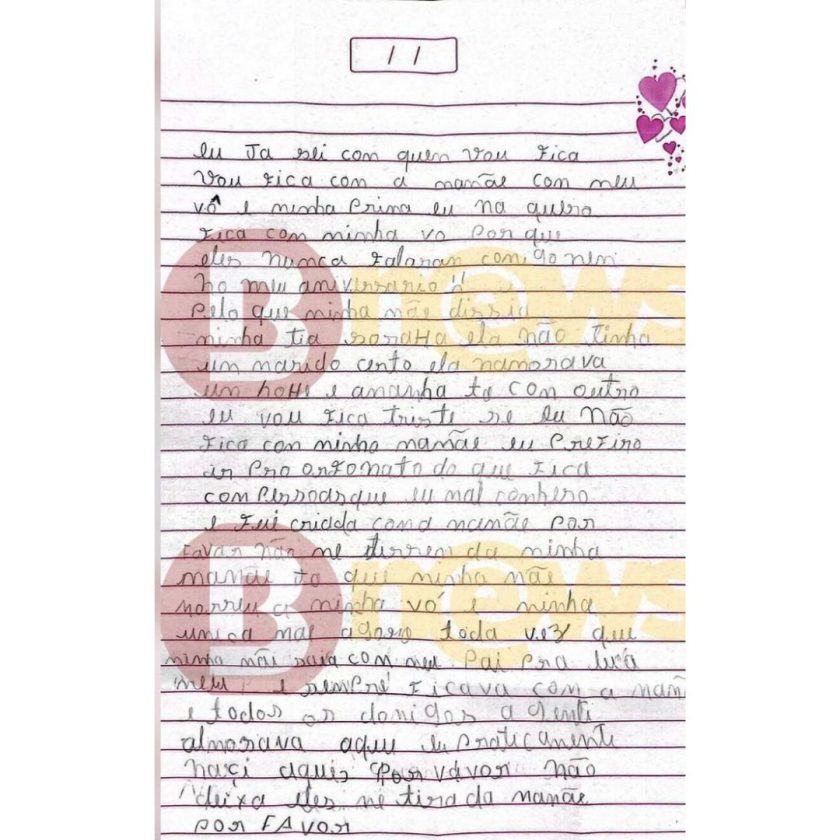 / /
eu Ja sei con quen vou Fica
vou Fica con a mamãe con meu
vô e minha Prima eu na quero
Fica con minha vo Por que
eles nunca Falaran comigo nem
no meu aniversario
Pelo que minha mãe dissiu
minha tia soraHa ela não tinha
un marido certo ela namorava
un hoHe e amanha ta con outro
eu vou Fica triste se eu não
Fica con minha mamãe eu PreFiro
ir Pro orFonato do que Fica
con Pessoas que eu mal conhero
e Fui criada cona mamãe Por
Favor não me tirren da minha
mamãe Ja que minha mãe
morreu a minha vó e minha
unica mãe agora toda vez que
minha mãe saia con meu Pai Pra
meu e senPre Ficava con a mam
e todos os domigos a genti
almorava aqui eu Praticamenti
naçi aqui Por vavor não
deixa eles me tira da mamãe
Por FAvor
B news
B news